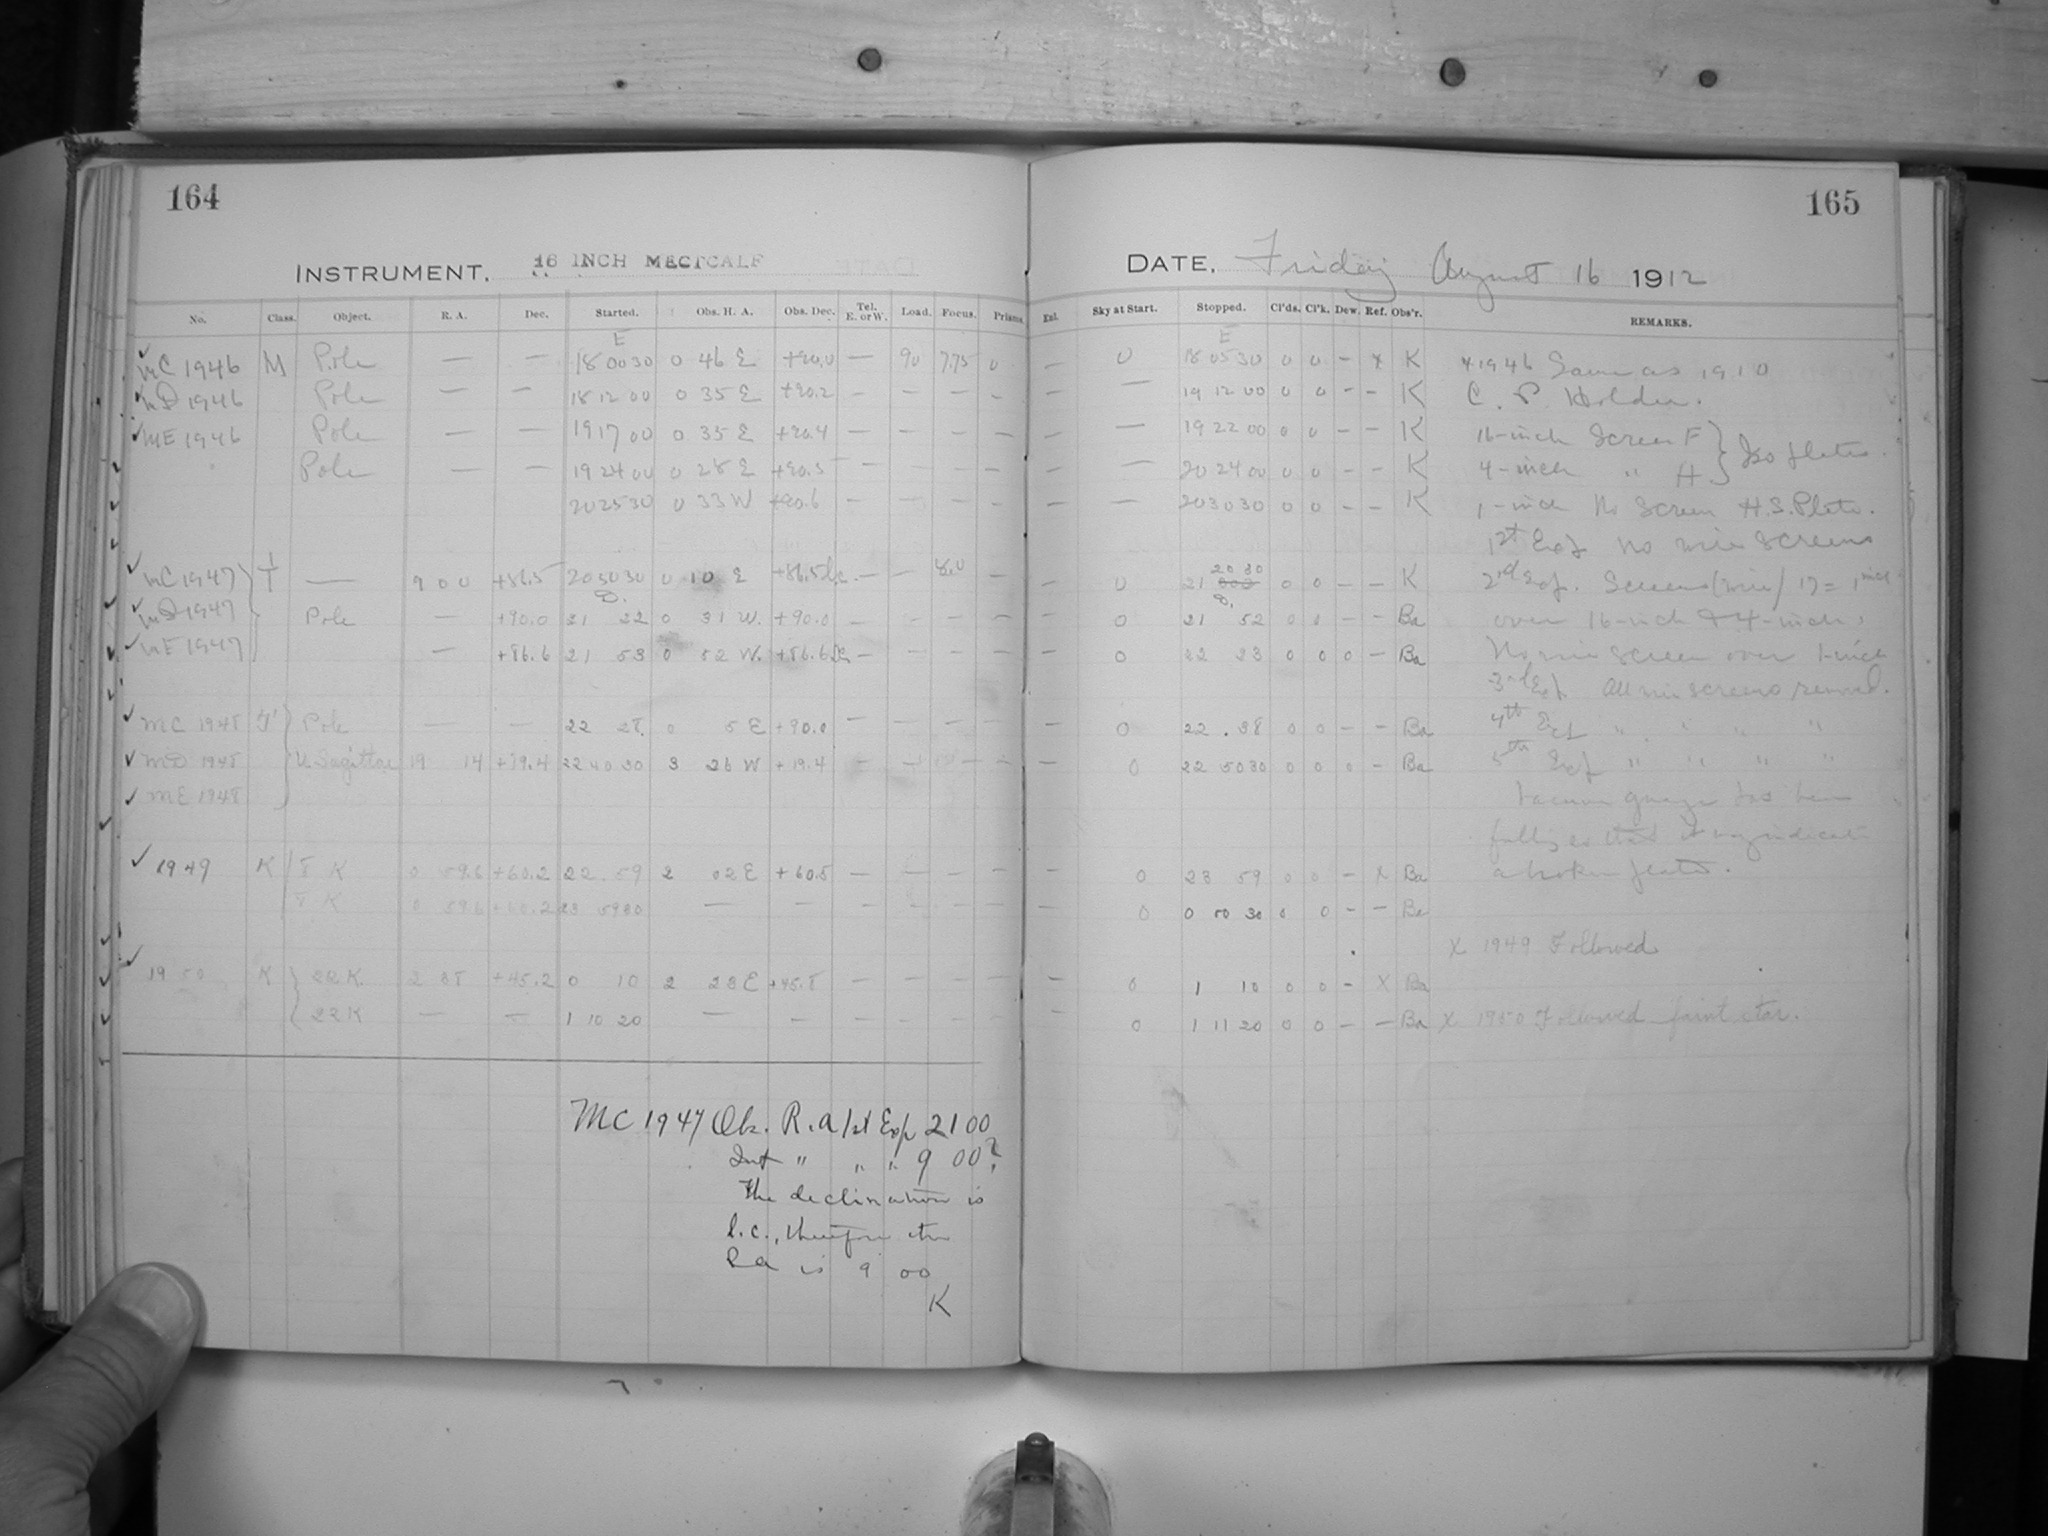 164
165
INSTRUMENT. 16 INCH METCALF
DATE. Friday August 16 1912
No. Class. Object. R. A. Dec. Started. Obs. H. A. Obs. Dec. Tel. E. or W. Load. Focus. Prisms
Exl. Sky at Start. Stopped. Cl'ds. Cl'k. Dew. Ref. Obs'r. REMARKS.
E
E
MC 1946 M Pole — — 18 00 30 0 46 E +90.0 — 90 7.75 0 — 0 18 05 30 0 0 - x K x 1946 Same as 1910
MD 1946 Pole — — 18 12 00 0 35 E +90.2 — — — — — 19 12 00 0 0 - - K C. P. Holder.
ME 1946 Pole — — 19 17 00 0 35 E +90.4 — — — — — — 19 22 00 0 0 - - K 16-inch Screen F } Iso plates.
Pole — — 19 24 00 0 28 E +90.5 — — — — — — 20 24 00 0 0 - - K 4-inch " H
20 25 30 0 33 W +90.6 — — — — — — 20 30 30 0 0 - - K 1-inch No Screen H.S. Plate.
1st Exp. No wire screens
MC 1947 T — 9 0 0 +86.5 20 50 30 0 10 E +86.5 l.c. — — 8.0 0 21 20 30 0 0 - - K 2nd Exp. Screens (wire)
MD 1947 Pole — +90.0 21 22 0 31 W. +90.0 — — — — — 0 21 52 0 0 - - Ba over 16-inch & 4-inch.
ME 1947 — +86.6 21 53 0 52 W. +86.6 l.c. — — — — — 0 22 23 0 0 0 - Ba No wire screen over 1-inch
3rd Exp. All wire screens removed.
MC 1948 T Pole — — 22 28 0 5 E +90.0 — — — — — 0 22 38 0 0 - - Ba 4th Exp. " " " "
MD 1948 U Sagittae 19 14 +19.4 22 40 30 3 26 W +19.4 — — — — 0 22 50 30 0 0 0 - Ba 5th Exp " " " "
ME 1948 Vacuum gauge has been
a broken plate.
1949 K I K 0 59.6 +60.2 22 59 2 02 E +60.5 — — — — — 0 23 59 0 0 - x Ba
I K 0 59.6 +60.2 23 59 30 — — — — — — — 0 0 00 30 0 0 - - Ba
x 1949 Followed
1950 K 22 K. 2 38 +45.2 0 10 2 28 E +45.5 — — — — — 0 1 10 0 0 - x Ba
22 K — — 1 10 20 — — — — — — — 0 1 11 20 0 0 - - Ba x 1950 Followed faint star.
MC 1947 Obs. R.A 1st Exp 21 00
Int " " " 9 00?
The declination is
l.c., therefore the
Ra is 9 00
K